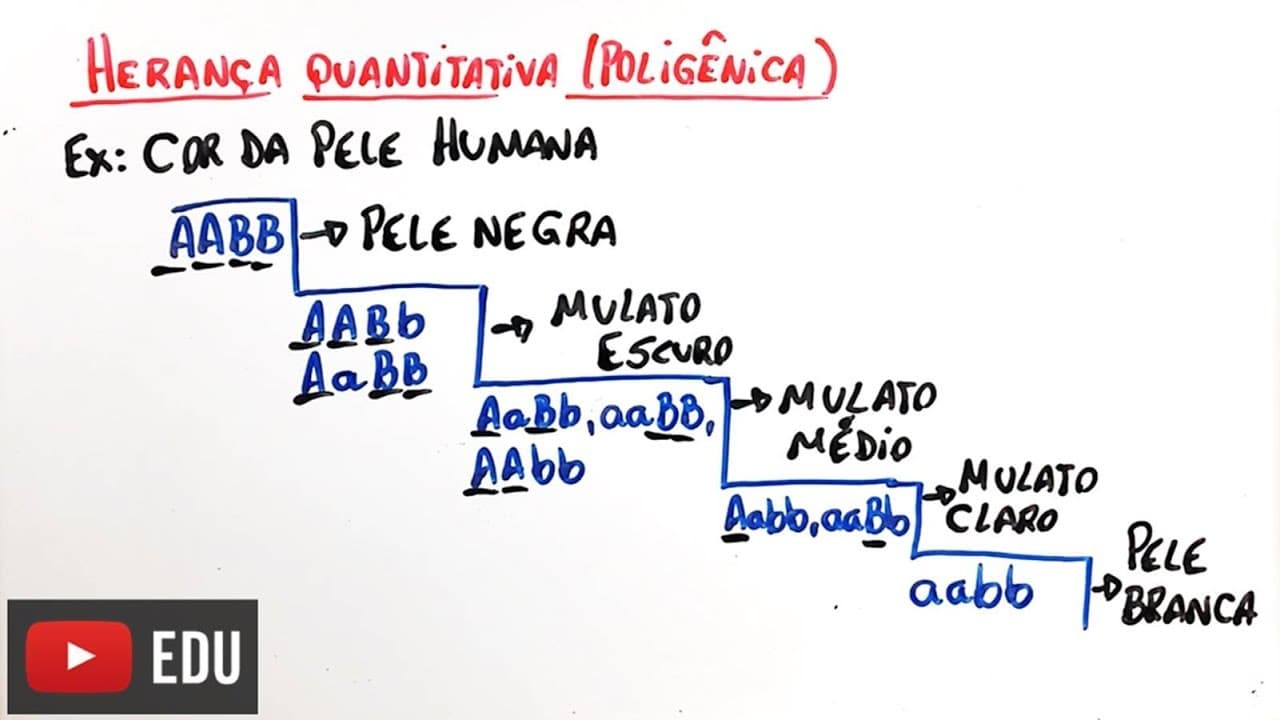 HERANÇA QUANTITATIVA (POLIGÊNICA)
Ex: COR DA PELE HUMANA
AABB → PELE NEGRA
AABb
AaBB
→ MULATO
ESCURO
AaBb, aaBB,
AAbb
→ MULATO
MÉDIO
Aabb, aaBb
→ MULATO
CLARO
aabb
→ PELE
BRANCA
EDU